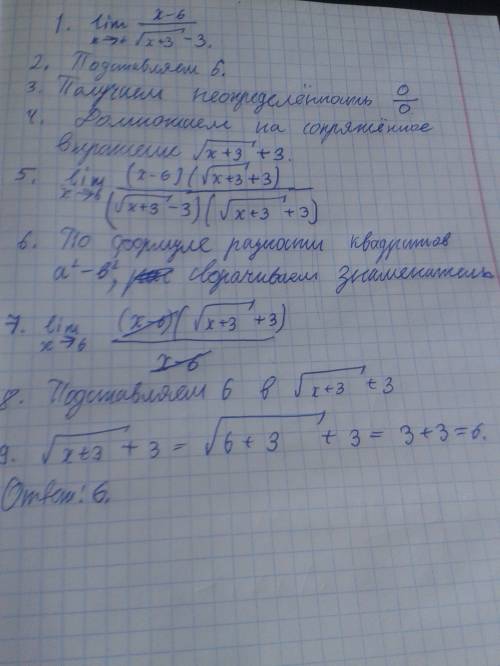 1. lim x→6 x-6 / √x+3 - 3.
2. Подставляем 6.
3. Получаем неопределённость 0/0
4. Домножаем на сопряжённое
выражение √x+3 + 3.
5. lim x→6 (x-6)(√x+3 + 3) / (√x+3 - 3)(√x+3 + 3)
6. По формуле разности квадратов
a² - b², сворачиваем знаменатель
7. lim x→6 (x-6)(√x+3 + 3) / x-6
8. Подставляем 6 в √x+3 + 3
9. √x+3 + 3 = √6+3 + 3 = 3+3=6.
Ответ: 6.